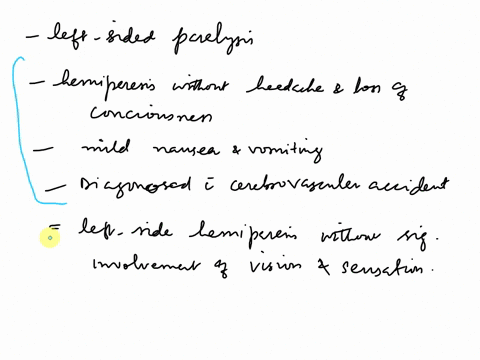 - left-sided paralysis
- hemiperesis without headache & loss of
conciousness
- mild nausea & vomiting
- Diagonosad c̄ cerebrovascular accident
= left-side hemiperesis without sig.
involvement of vision & sensation.